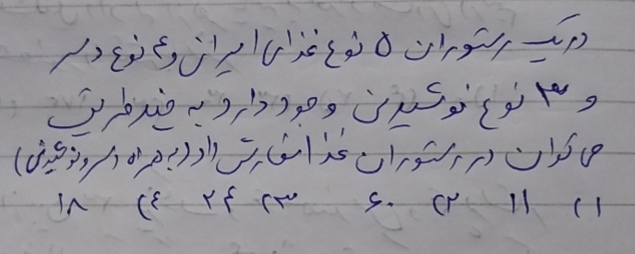 در یک رستوران ۵ نوع غذای ایرانی و ۴ نوع دسر
و ۳ نوع نوشیدنی وجود دارد به چند طریق
می توان در رستوران غذا سفارش داد (به همراه دسر و نوشیدنی)
۱) ۱۱ ۲) ۶۰ ۳) ۲۴ ۴) ۱۸